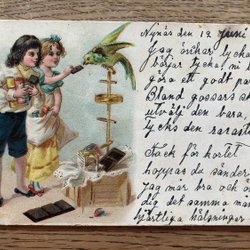 Nynäs den 12 Juni
Jag önskar lycka
börjar tycka, ni
göra ett godt pa
Bland gossars sk
utvälj den bara,
Tycks den raraste
Tack för kortet
hoppas du sander
jag mår bra och
dig det samma
hjärtliga hälsningar